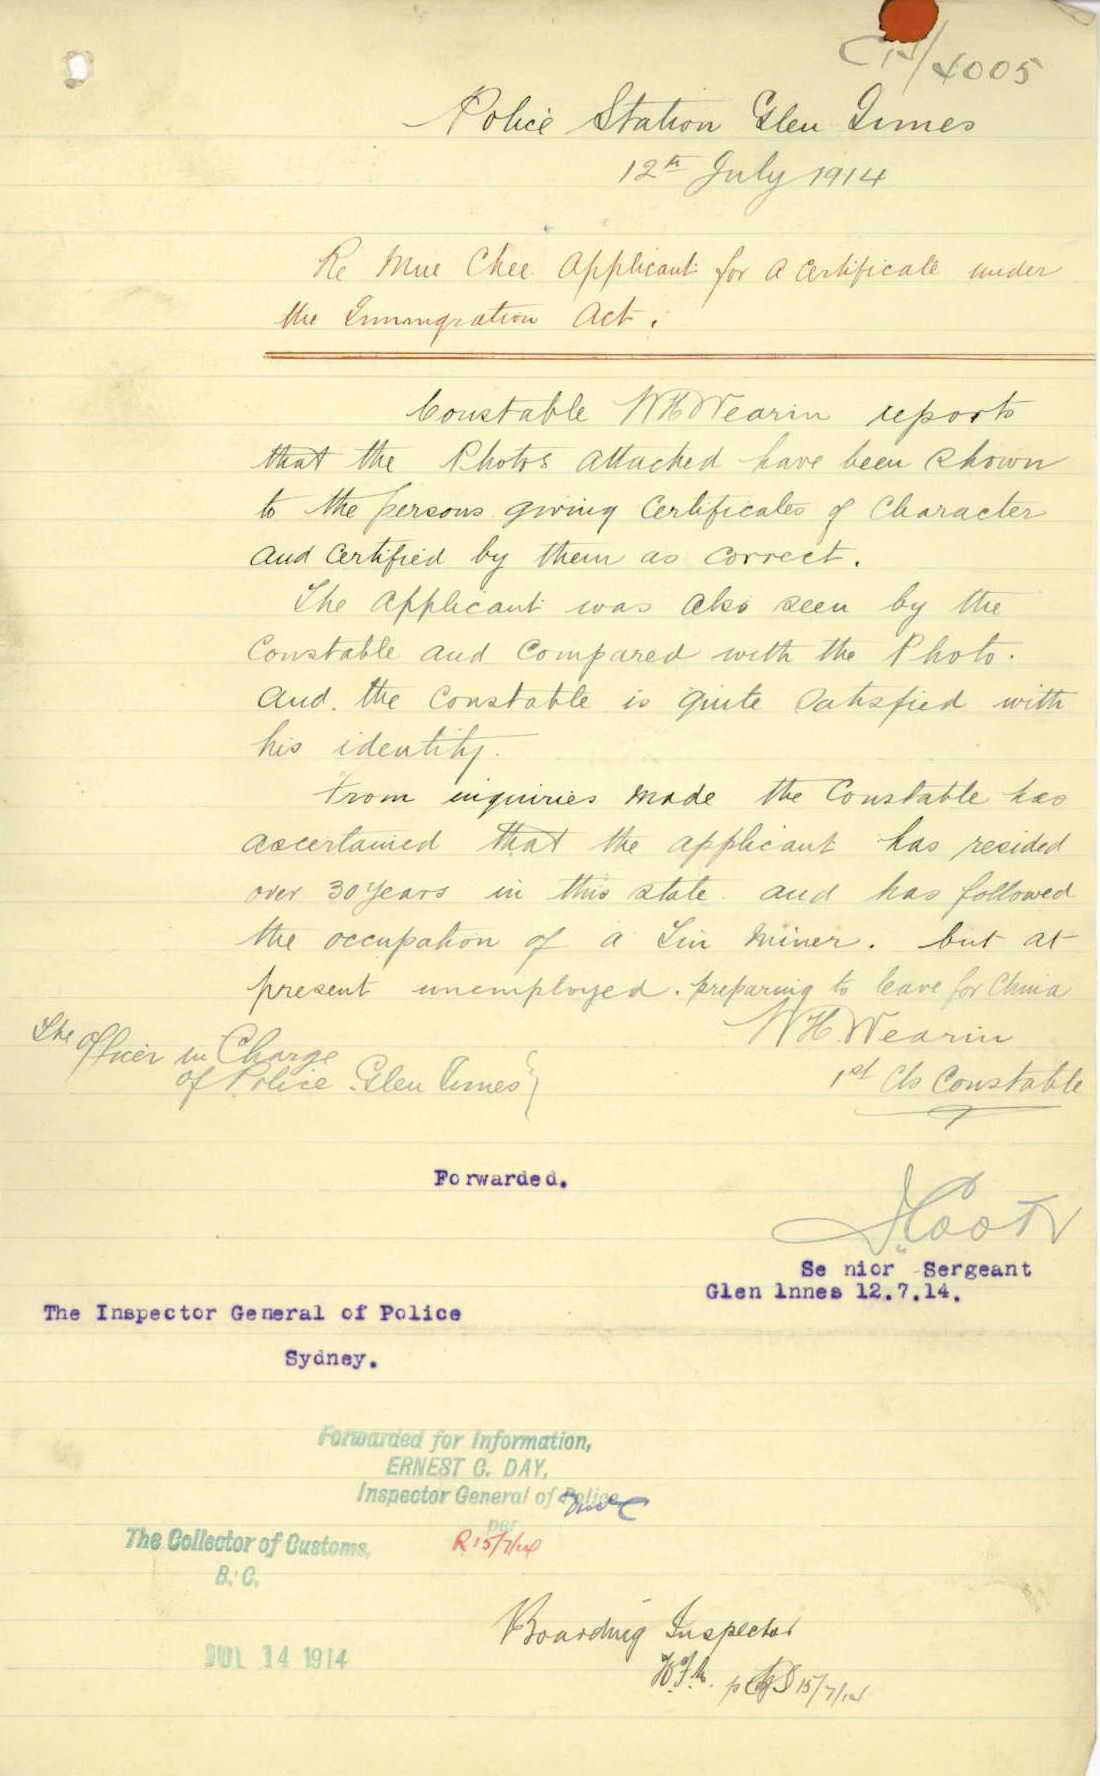 C14/4005
Police Station Glen Innes
12th July 1914
Re Mue Chee Applicant for a Certificate under
the Immigration Act.
Constable W H Wearin reports
that the Photos attached have been shown
to the persons giving Certificates of Character
and Certified by them as correct.
The Applicant was also seen by the
Constable and Compared with the Photo.
And. the Constable is quite satisfied with
his identity.
From inquiries made the Constable has
ascertained that the applicant has resided
over 30 years in this state. and has followed
the occupation of a Tin Miner. but at
present unemployed. preparing to leave for China
W H Wearin
1st Cls Constable
The Officer in Charge
of Police Glen Innes
Forwarded.
Senior Sergeant
Glen lnnes 12.7.14.
The Inspector General of Police
Sydney.
Forwarded for Information,
ERNEST C. DAY,
Inspector General of Police
per
R 15/7/14
The Collector of Customs,
B. C.
JUL 14 1914
Boarding Inspector
15/7/14